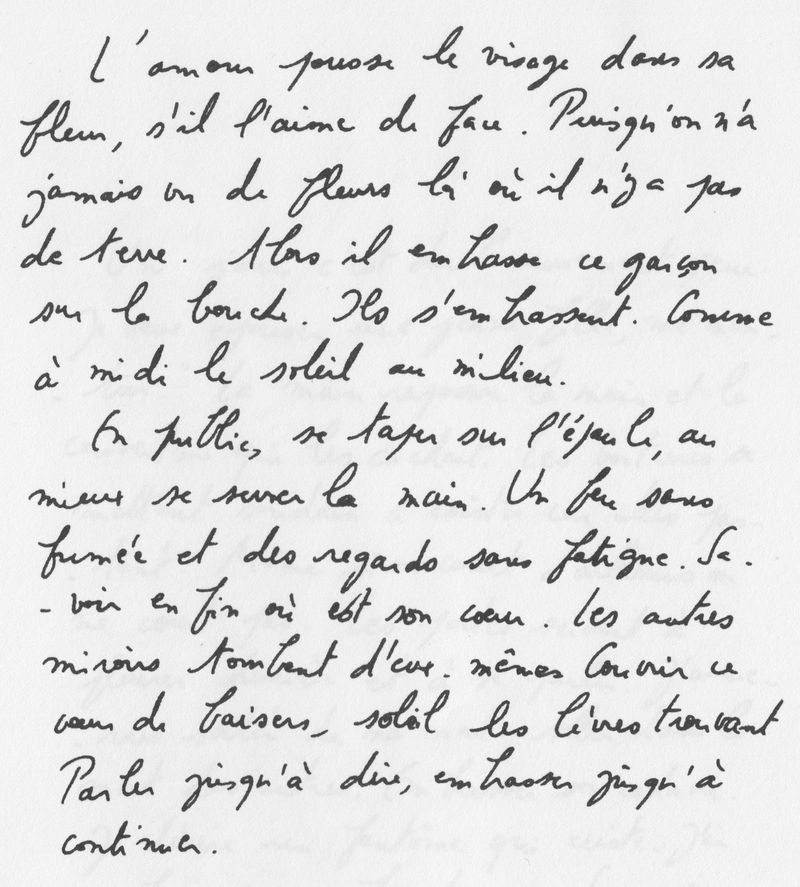 L'amour pousse le visage dans sa
fleur, s'il l'aime de face. Puisqu'on n'a
jamais vu de fleurs là où il n'y a pas
de terre. Alors il embrasse ce garçon
sur la bouche. Ils s'embrassent. Comme
à midi le soleil au milieu.
En public, se taper sur l'épaule, au
mieux se serrer la main. Un feu sans
fumée et des regards sans fatigue. Sa-
-voir enfin où est son cœur. Les autres
miroirs tombent d'eux-mêmes. Couvrir ce
cœur de baisers, soleil les lèvres trouvant
Parler jusqu'à dire, embrasser jusqu'à
continuer.